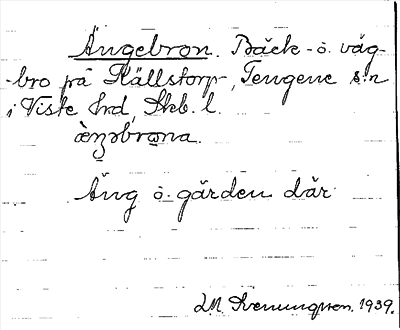 Ängebron. Bäck- o. väg-
-bro på Hällstorp-, Tengene s:n
i Viste hrd, Skb. l.
æŋəbrωna.
Äng o gärden där
LM. Svenungsson. 1939.